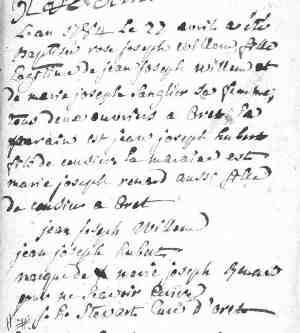 L'an 1784 le 27 avril a été
baptisée rose joseph willem fille
légitime de jean joseph willem et
de marie joseph sanglier sa femme,
tous deux ouvriers a Oret, le
parain est jean joseph hubert
fils de la maraine est
marie joseph renard aussi fille
de a Oret
jean joseph willem
jean joseph hubert
marque de x marie joseph Renard
pour ne scavoir écrire
Stevart Curé d'Oret